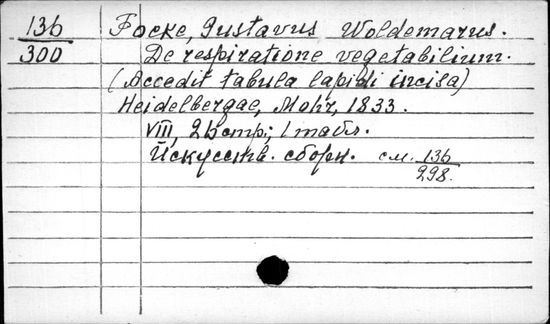 136 Focke, Gustavus Woldemarus.
300 De respiratione vegetabilium.
(Accedit tabula lapidi incisa)
Heidelbergae, Mohr, 1833.
VIII, 26 стр; 1 табл.
Искусств. сборн. см. 136
298.